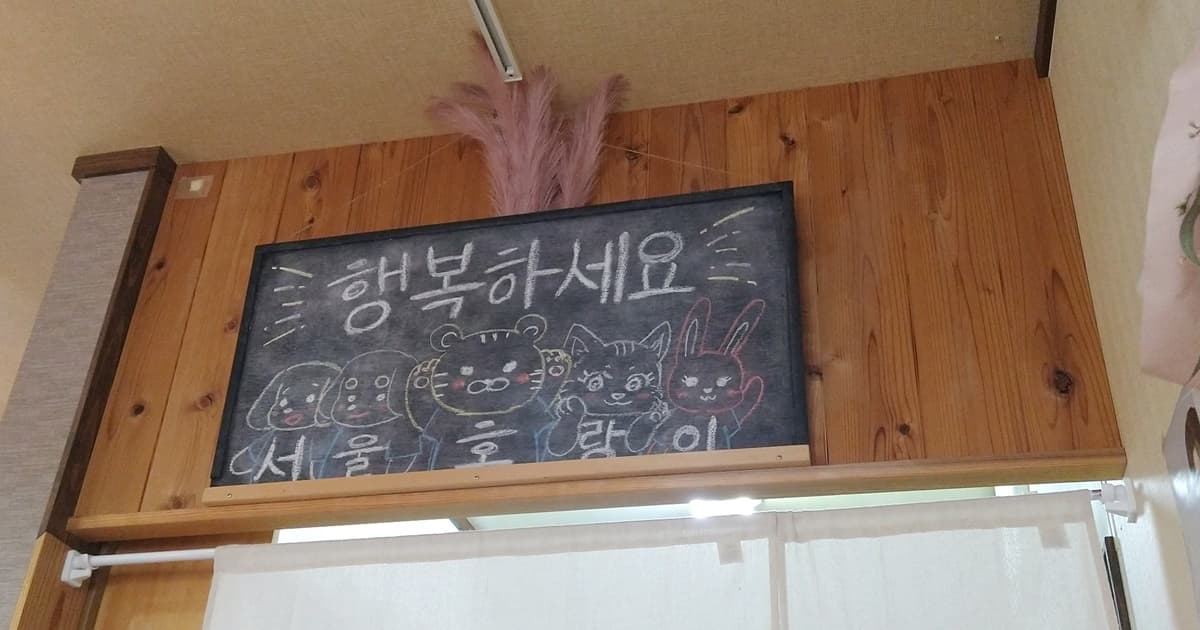 행복하세요
서울호랑이